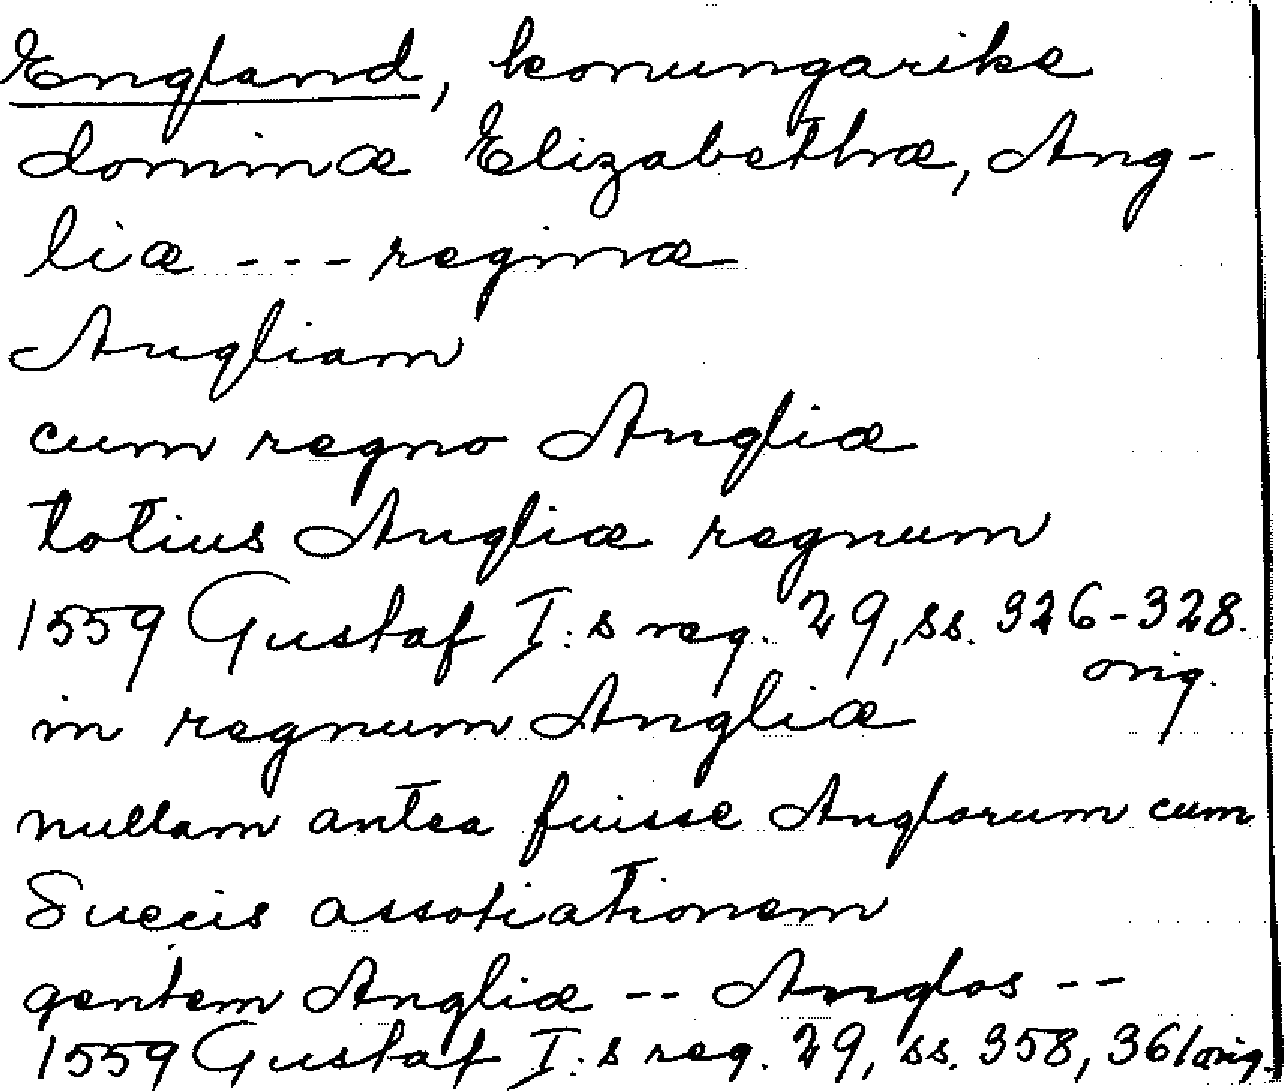 England, konungarike
dominæ Elizabethæ, Ang-
liæ --- reginæ
Angliam
cum regno Angliæ
totius Angliæ regnum
1559 Gustaf I:s reg. 29, ss. 326-328.
orig.
in regnum Angliæ
nullam antea fuisse Anglorum cum
Suecis assotiationem
gentem Angliæ -- Anglos --
1559 Gustaf I:s reg. 29, ss. 358, 361 orig.